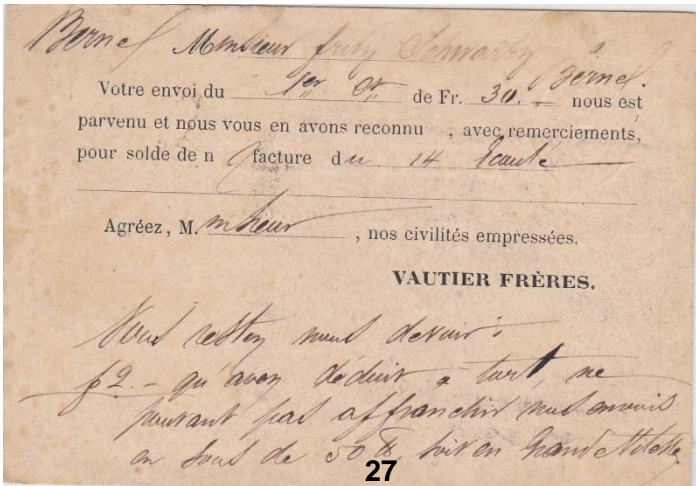 Bernel
Monsieur Fritz Schwarby à
Bernel.
Votre envoi du 1er Ct de Fr. 30. – nous est
parvenu et nous vous en avons reconnu , avec remerciements,
pour solde de n/ facture du 14 Ecoulé
Agréez, M. onsieur , nos civilités empressées.
VAUTIER FRÈRES.
Vous restez nous devoir:
f 2. – qu'avez déduit à tort, ne
pouvant pas affranchir nos envois
en sous de 50 soit en Grande
27